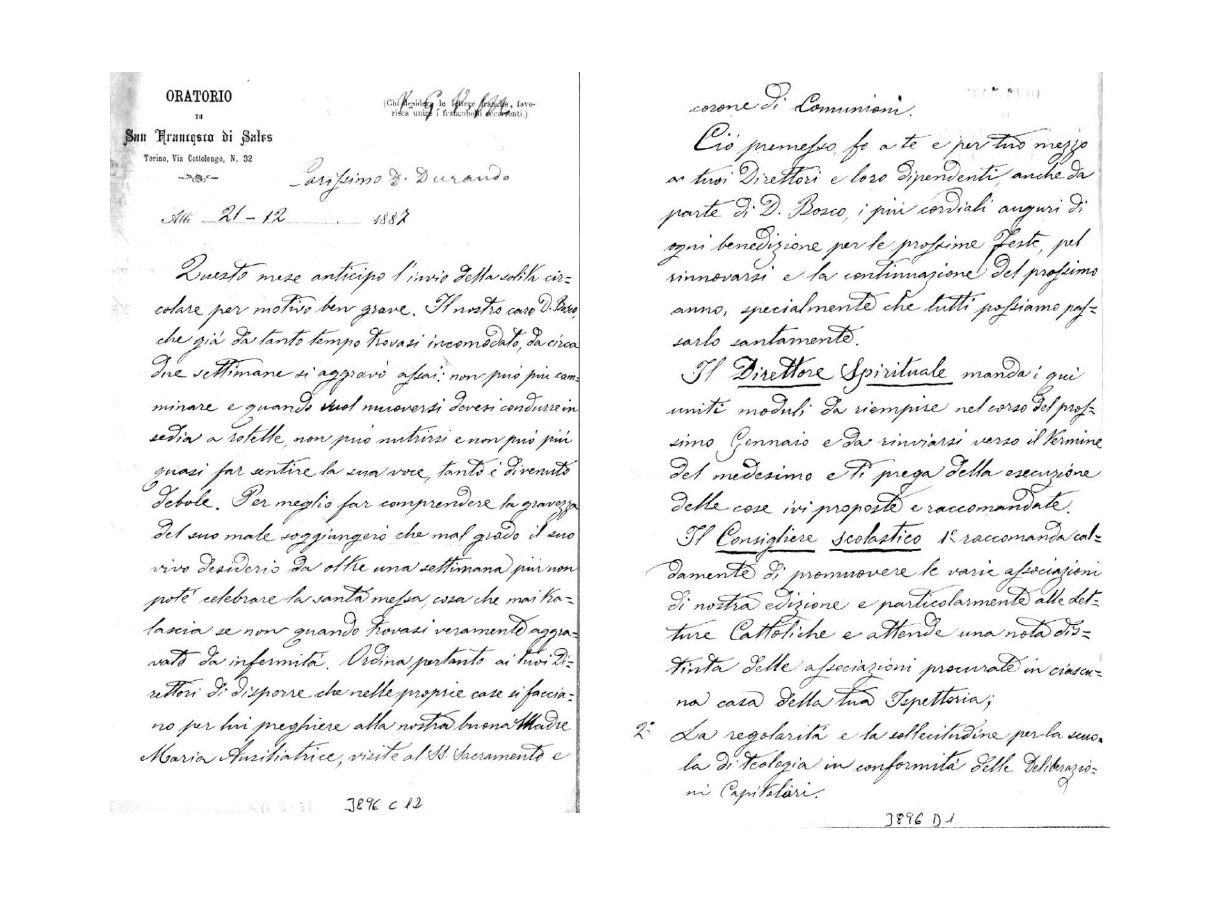 ORATORIO
DI
San Francesco di Sales
Torino, Via Cottolengo, N. 32
(Chi desidera le lettere franche, favo-
risca unire i francobolli occorrenti.)
Carissimo D. Durando
Alli 21 - 12 1887
Questo mese anticipo l'invio della solita cir=
colare per motivo ben grave. Il nostro caro D. Bosco,
che già da tanto tempo trovasi incomodato, da circa
due settimane si aggravò assai: non può più cam=
minare e quando vuol muoversi devesi condurre in
sedia a rotelle, non può nutrirsi e non può più
quasi far sentire la sua voce, tanto è divenuto
debole. Per meglio far comprendere la gravezza
del suo male soggiungerò che mal grado il suo
vivo desiderio da oltre una settimana più non
potè celebrare la santa messa, cosa che mai tra=
lascia se non quando trovasi veramente aggra=
vato da infermità. Ordina pertanto ai tuoi Di=
rettori di disporre che nelle proprie case si faccia=
no per lui preghiere alla nostra buona Madre
Maria Ausiliatrice, visite al SS. Sacramento e
3896 C 12
corone di Comunioni.
Ciò premesso, fo a te e per tuo mezzo
a' tuoi Direttori e loro dipendenti, anche da
parte di D. Bosco, i più cordiali auguri di
ogni benedizione per le prossime Feste, pel
rinnovarsi e la continuazione del prossimo
anno, specialmente che tutti possiamo pas=
sarlo santamente.
Il Direttore Spirituale manda i qui
uniti moduli da riempire nel corso del pros=
simo Gennaio e da rinviarsi verso il termine
del medesimo e ti prega della esecuzione
delle cose ivi proposte e raccomandate.
Il Consigliere Scolastico 1º raccomanda cal=
damente di promuovere le varie associazioni
di nostra edizione e particolarmente alle Let=
ture Cattoliche e attende una nota dis=
tinta delle associazioni procurate in ciascu=
na casa della tua Ispettoria;
2º La regolarità e la sollecitudine per la scuo=
la di teologia in conformità delle Deliberazio=
ni Capitolari.
3896 D 1